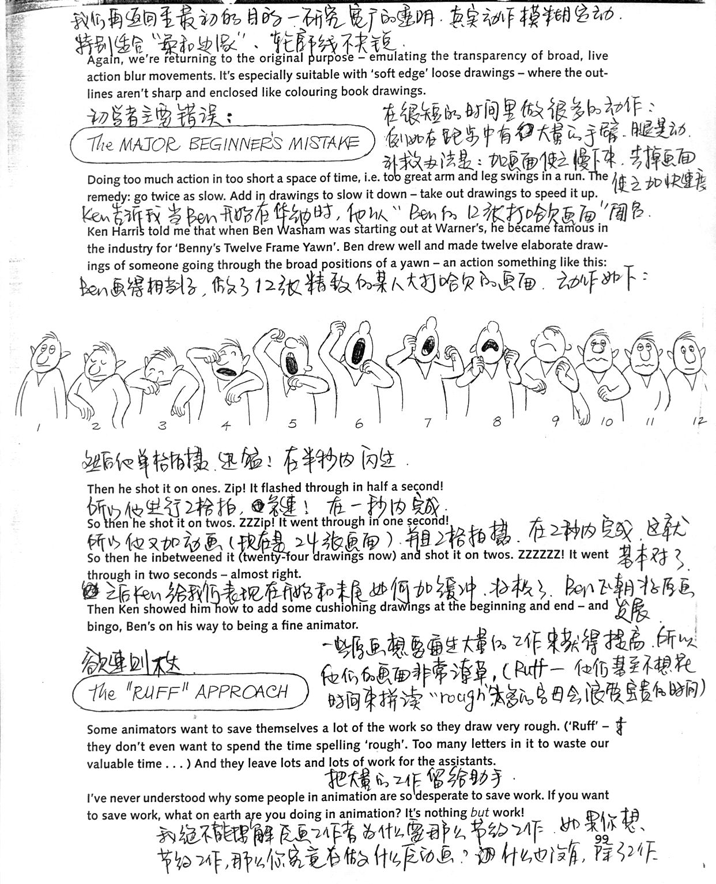 我们再返回来最初的目的—研究宽广的透明、真实动作模糊运动.
特别适合“柔和边缘”、轮廓线不尖锐
Again, we're returning to the original purpose – emulating the transparency of broad, live
action blur movements. It's especially suitable with 'soft edge' loose drawings – where the out-
lines aren't sharp and enclosed like colouring book drawings.
初学者主要错误:
The MAJOR BEGINNER'S MISTAKE
在很短的时间里做很多的动作:
例如在跑步中有大量的手臂、腿晃动.
补救办法是: 加画面使之慢下来. 去掉画面
使之加快速度
Doing too much action in too short a space of time, i.e. too great arm and leg swings in a run. The
remedy: go twice as slow. Add in drawings to slow it down – take out drawings to speed it up.
Ken告诉我当Ben开始在华纳时, 他以“Ben的12张打哈欠画面”闻名.
Ken Harris told me that when Ben Washam was starting out at Warner's, he became famous in
the industry for 'Benny's Twelve Frame Yawn'. Ben drew well and made twelve elaborate draw-
ings of someone going through the broad positions of a yawn – an action something like this:
Ben画得相当好, 做了12张精致的某人大打哈欠的画面. 动作如下:
1 2 3 4 5 6 7 8 9 10 11 12
然后他单格拍摄. 迅猛! 在半秒内闪过.
Then he shot it on ones. Zip! It flashed through in half a second!
所以他进行2格拍, 急速! 在一秒内完成.
So then he shot it on twos. ZZZip! It went through in one second!
所以他又加动画(现在是24张画面) 并且2格拍摄. 在2秒内完成. 这就
基本对了.
So then he inbetweened it (twenty-four drawings now) and shot it on twos. ZZZZZZ! It went
through in two seconds – almost right.
之后Ken给我们表现在开始和末尾如何加缓冲. Ben正朝好原画
发展.
Then Ken showed him how to add some cushioning drawings at the beginning and end – and
bingo, Ben's on his way to being a fine animator.
欲速则不达
The "RUFF" APPROACH
一些原画想要大量的工作来获得提高. 所以
他们的画面非常潦草, (Ruff— 他们甚至不想花
时间来拼读“rough” 太多的字母会浪费宝贵的时间)
Some animators want to save themselves a lot of the work so they draw very rough. ('Ruff' –
they don't even want to spend the time spelling 'rough'. Too many letters in it to waste our
valuable time . . .) And they leave lots and lots of work for the assistants.
把大量的工作留给助手.
I've never understood why some people in animation are so desperate to save work. If you want
to save work, what on earth are you doing in animation? It's nothing but work!
我绝不能理解动画工作者为什么要那么节约工作. 如果你想
节约工作, 那么你究竟在做什么动画? 什么也没有, 除了工作
99